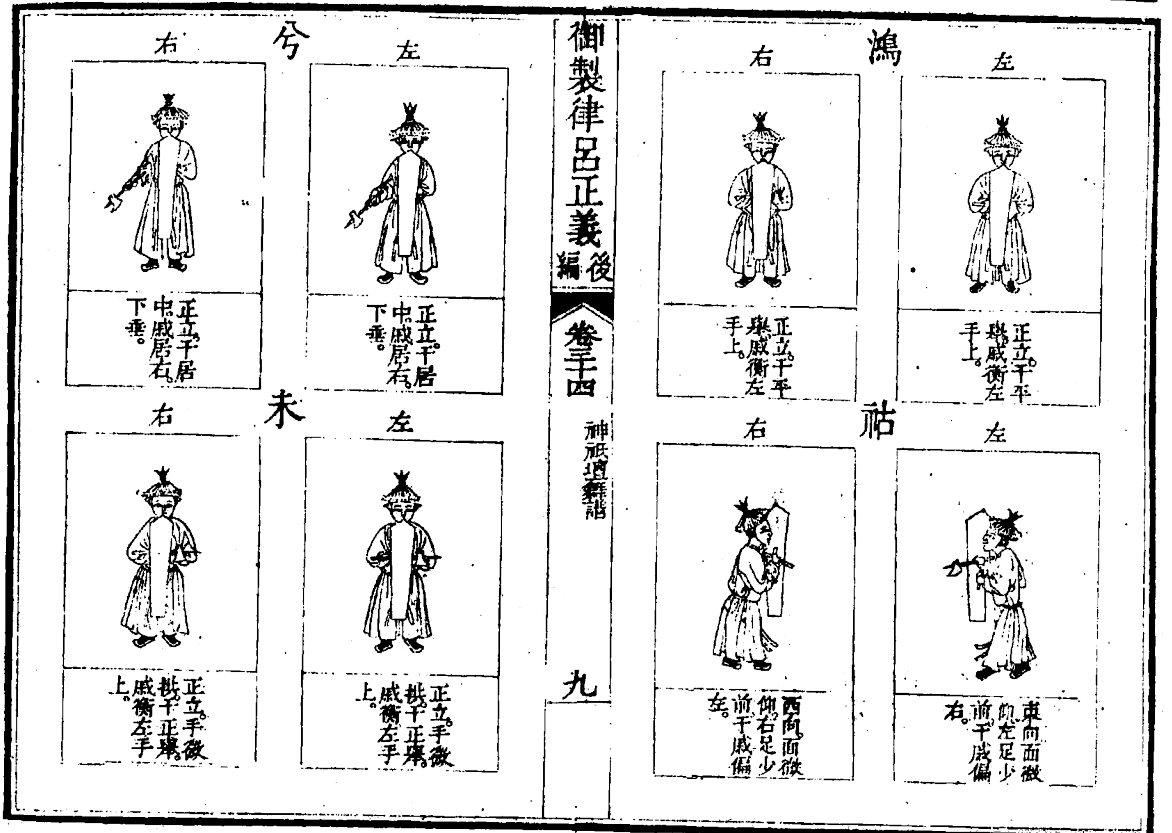 鴻
左
正立。干平
舉。戚衡左
手上。
右
正立。干平
舉。戚衡左
手上。
祜
左
東向面微
仰。左足少
前。干戚偏
右。
右
西向。面微
仰。右足少
前。干戚偏
左。
御製律呂正義後編
卷三十四
神祇壇舞譜
九
兮
左
正立。干居
中。戚居右。
下垂。
右
正立。干居
中。戚居右。
下垂。
未
左
正立。手微
拱。干正舉。
戚衡左手
上。
右
正立。手微
拱。干正舉。
戚衡左手
上。